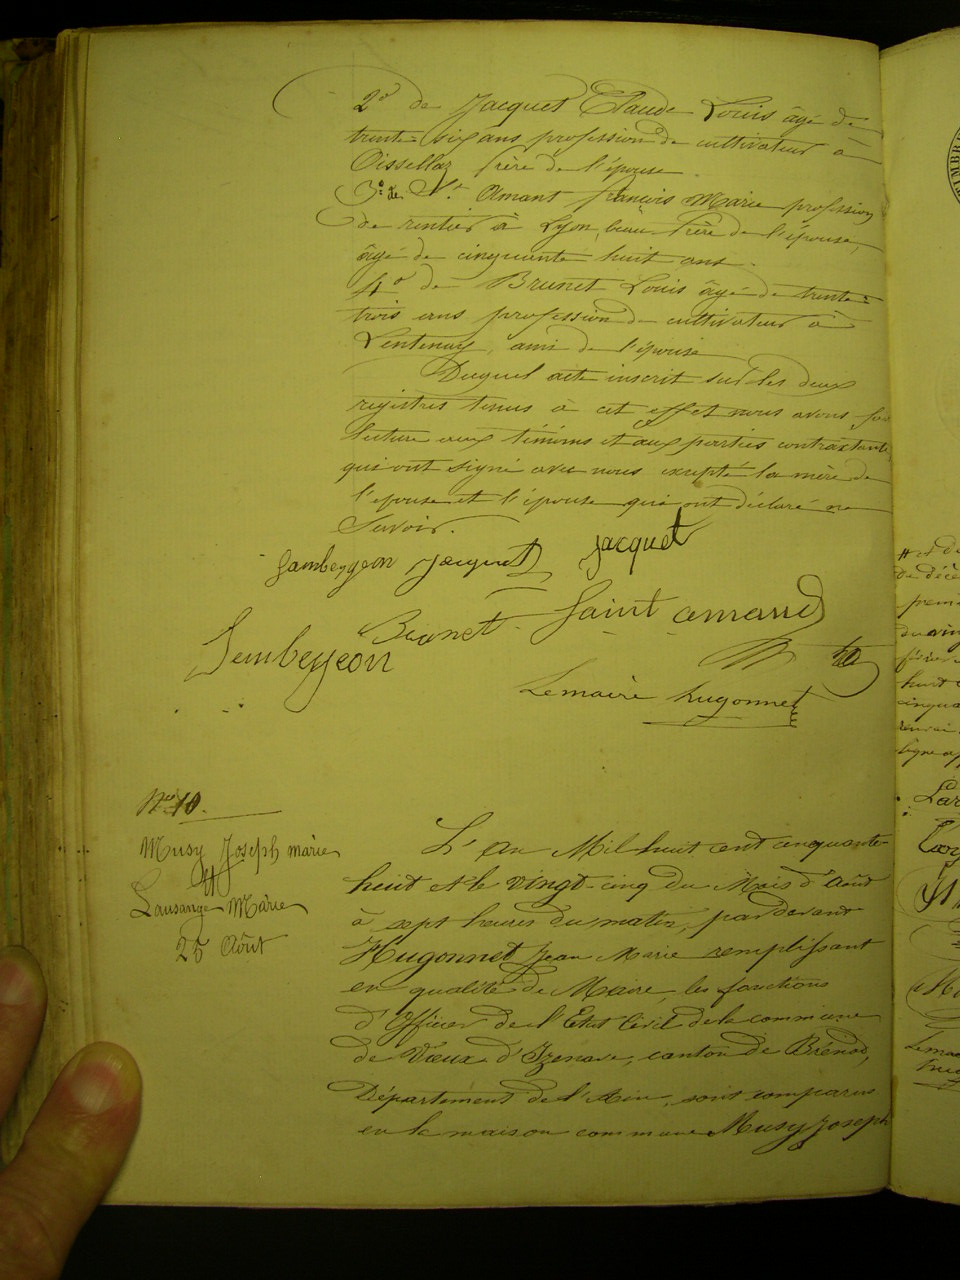 2º de Jacquet Claude Louis âgé de
trente six ans profession de cultivateur à
Oissellaz frère de l'épouse
3º de St. Amant françois Marie profession
de rentier à Lyon, beau frère de l'épouse,
âgé de cinquante huit ans.
4º de Brunet Louis âgé de trente
trois ans profession de cultivateur à
Lentenay, ami de l'épouse
Duquel acte inscrit sur les deux
registres tenus à cet effet nous avons
lecture aux témins et aux parties contractant
qui ont signé avec nous excepté la mère de
l'épouse et l'épouse qui ont déclaré ne
Savoir.
Gambeygeon Jacquet Jacquet
Brunet Saint amand
Jembeyeon
Lemaire hugonnet
Nº 10.
Musy Joseph marie
et
Lausange Marie
25 Août
L'an Mil huit cent cinquante
huit et le vingt-cinq du Mois d'Août
à sept heures du matin, pardevant
Hugonnet Jean Marie remplissant
en qualité de Maire, les fonctions
d'Officier de l'Etat Civil de la commune
de Vieux d'Izenave, canton de Brénod,
Département de l'Ain, sont comparus
en la maison commune Musy Joseph
premi
du vin
huit
cinqua